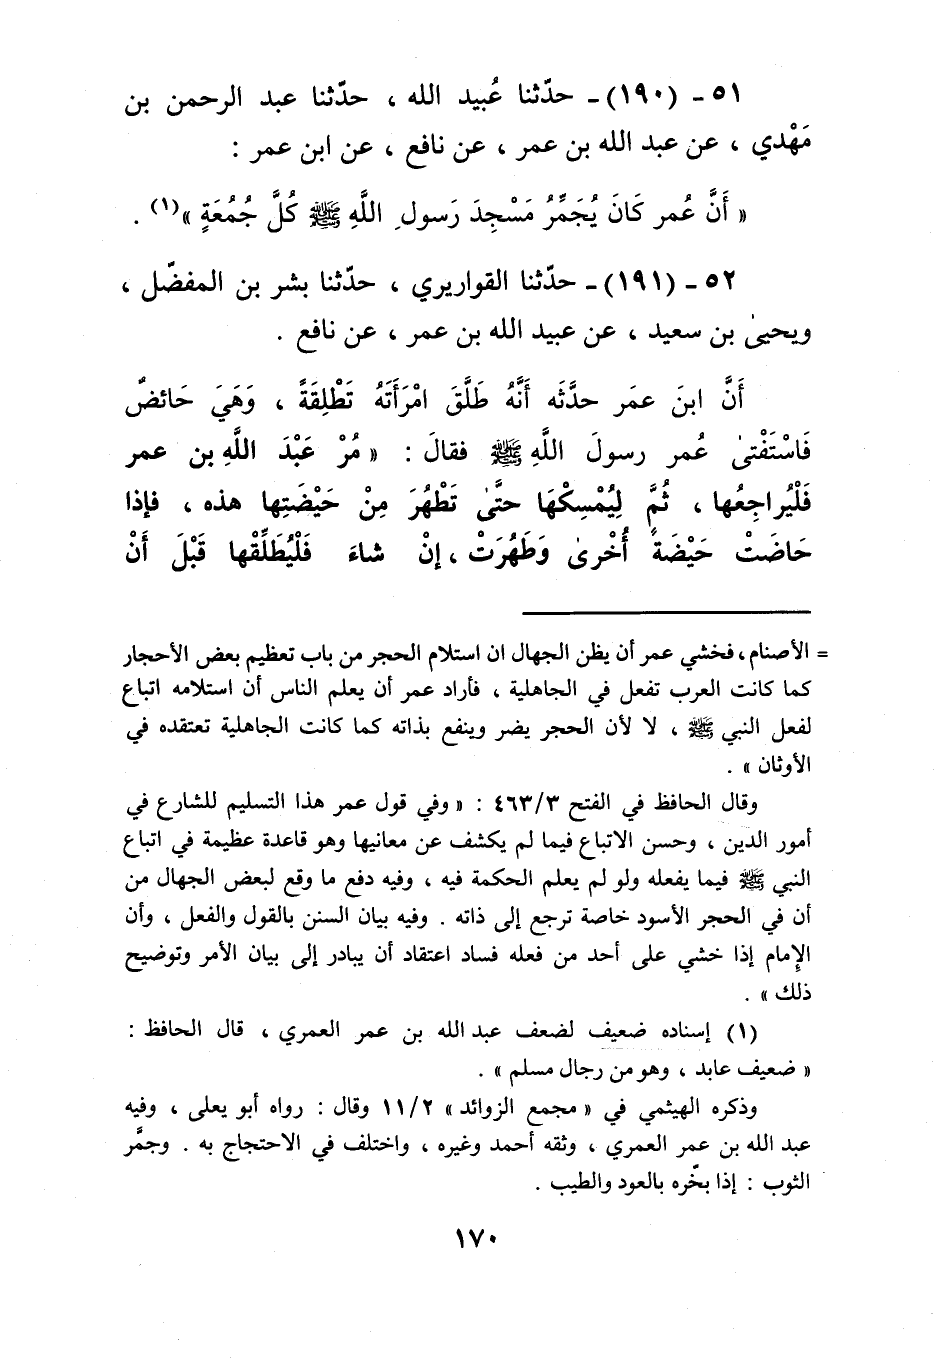 ٥١ - (١٩٠) - حدّثنا عُبيد الله ، حدّثنا عبد الرحمن بن
مَهْدي ، عن عبد الله بن عمر ، عن نافع ، عن ابن عمر :
« أَنَّ عُمر كَانَ يُجَمِّرُ مَسْجِدَ رَسولِ اللَّهِ ﷺ كُلَّ جُمُعَةٍ »(١) .
٥٢ - (١٩١) - حدّثنا القواريري ، حدّثنا بشر بن المفضّل ،
ويحيىٰ بن سعيد ، عن عبيد الله بن عمر ، عن نافع .
أَنَّ ابنَ عمَر حدَّثَه أَنَّهُ طَلَّقَ امْرَأَتَهُ تَطْلِقَةً ، وَهَيَ حَائضٌ
فَاسْتَفْتىٰ عُمر رسولَ اللَّهِ ﷺ فقالَ : « مُرْ عَبْدَ اللَّهِ بن عمر
فَلْيُراجِعُها ، ثُمَّ لِيُمْسِكْهَا حتَّىٰ تَطْهُرَ مِنْ حَيْضَتِها هذه ، فإذا
حَاضَتْ حَيْضَةً أُخْرىٰ وَطَهُرَتْ ، إنْ شاءَ فَلْيُطَلِّقْها قَبْلَ أَنْ
= الأصنام ، فخشي عمر أن يظن الجهال ان استلام الحجر من باب تعظيم بعض الأحجار
كما كانت العرب تفعل في الجاهلية ، فأراد عمر أن يعلم الناس أن استلامه اتباع
لفعل النبي ﷺ ، لا لأن الحجر يضر وينفع بذاته كما كانت الجاهلية تعتقده في
الأوثان » .
وقال الحافظ في الفتح ٤٦٣/٣ : « وفي قول عمر هذا التسليم للشارع في
أمور الدين ، وحسن الاتباع فيما لم يكشف عن معانيها وهو قاعدة عظيمة في اتباع
النبي ﷺ فيما يفعله ولو لم يعلم الحكمة فيه ، وفيه دفع ما وقع لبعض الجهال من
أن في الحجر الأسود خاصة ترجع إلى ذاته . وفيه بيان السنن بالقول والفعل ، وأن
الإمام إذا خشي على أحد من فعله فساد اعتقاد أن يبادر إلى بيان الأمر وتوضيح
ذلك » .
(١) إسناده ضعيف لضعف عبد الله بن عمر العمري ، قال الحافظ :
« ضعيف عابد ، وهو من رجال مسلم » .
وذكره الهيثمي في « مجمع الزوائد » ١١/٢ وقال : رواه أبو يعلى ، وفيه
عبد الله بن عمر العمري ، وثقه أحمد وغيره ، واختلف في الاحتجاج به . وجمَّر
الثوب : إذا بخّره بالعود والطيب .
١٧٠